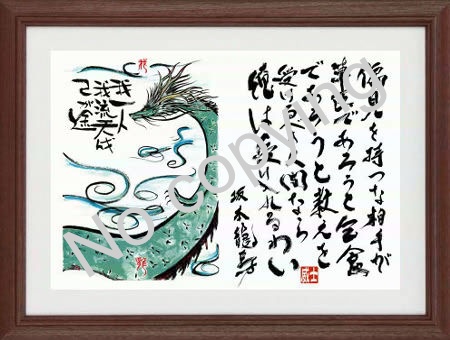 偏見を持つな相手が
幕臣であろうと乞食
であろうと教えを
受け人間なら
俺は受け入れるわい
坂本龍馬
我一人
我流天
己が途
No copying